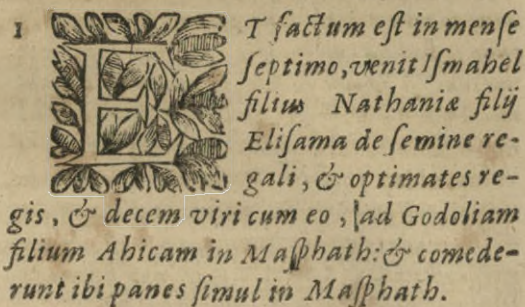 1 ET factum est in mense
septimo, venit Ismahel
filius Nathaniæ filij
Elisama de semine re-
gali, & optimates re-
gis, & decem viri cum eo, ad Godoliam
filium Ahicam in Masphath: & comede-
runt ibi panes simul in Masphath.